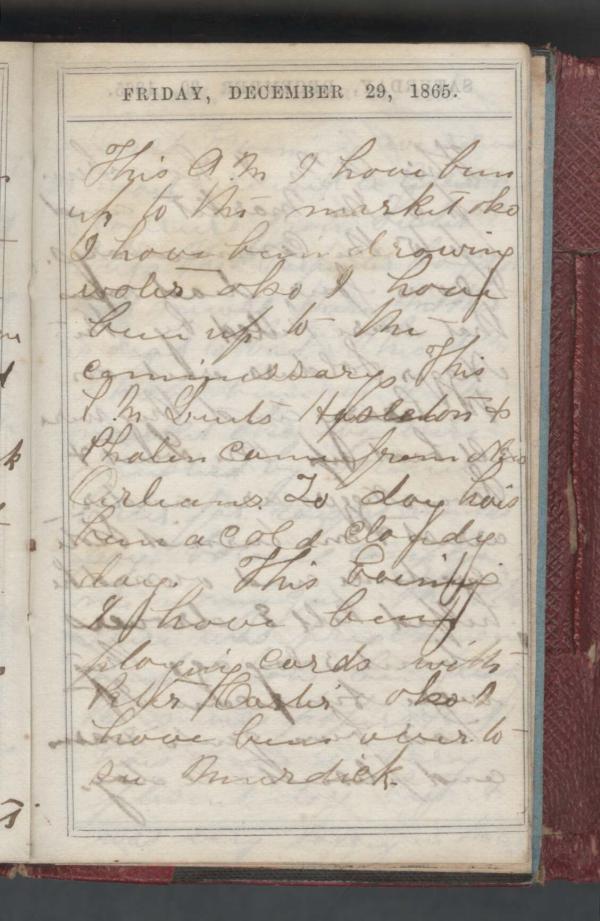 FRIDAY, DECEMBER 29, 1865.
This A.M I have bin
up to the market also
I have bin drawing
water also I have
bin up to the
commissary. This
P.M Leuts Hasleton &
Phalen came from New
Orleans. To day has
bin a cold cloudy
day. This Evining
I have bin
playing cards with
Peter also I
have bin over to
see Murdick.